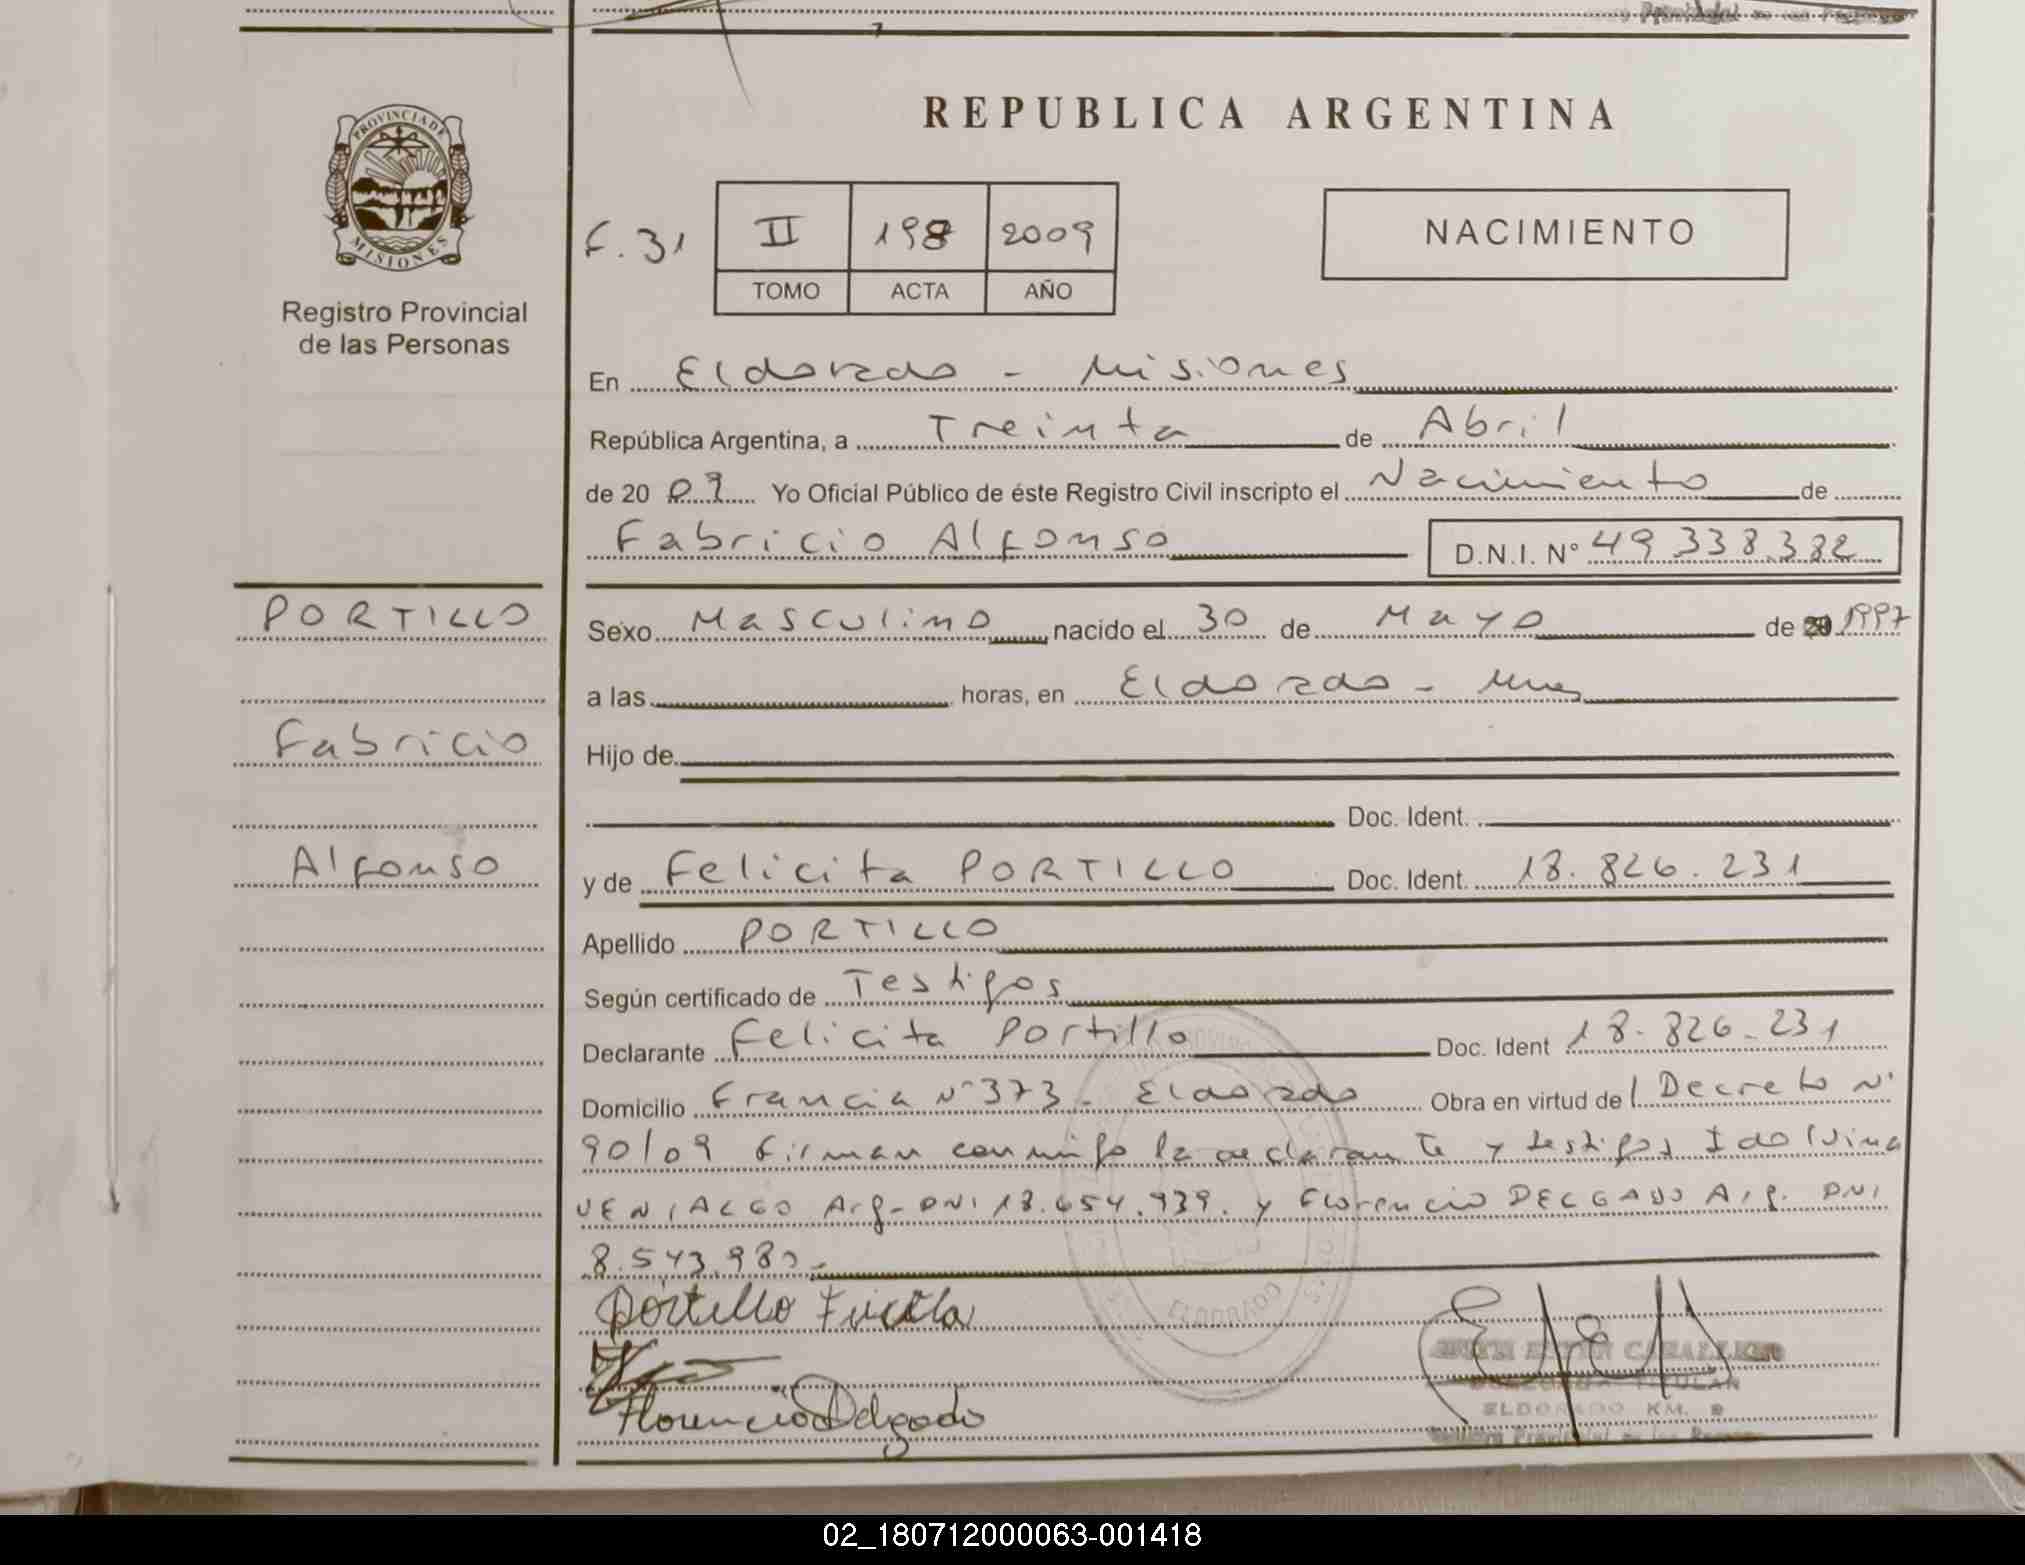 REPUBLICA ARGENTINA
PROVINCIA DE
MISIONES
Registro Provincial
de las Personas
F. 31
II 198 2009
TOMO ACTA AÑO
NACIMIENTO
En Eldorado - Misiones
República Argentina, a Treinta de Abril
de 20 09 Yo Oficial Público de éste Registro Civil inscripto el Nacimiento de
Fabricio Alfonso D.N.I. Nº 49.338.382
PORTILLO
Fabricio
Alfonso
Sexo Masculino nacido el 30 de Mayo de 1997
a las horas, en Eldorado - Mnes
Hijo de
Doc. Ident.
y de Felicita PORTILLO Doc. Ident. 18.826.231
Apellido PORTILLO
Según certificado de Testigos
Declarante Felicita Portillo Doc. Ident 18.826.231
Domicilio Francia Nº 373 - Eldorado Obra en virtud de Decreto Nº
90/09 Firman conmigo la declarante y testigos Idolvina
VENIALGO Arg- DNI 18.654.939. y Florencio DELGADO Arg. DNI
8.543.980.-
Portillo
Florencio Delgado
ELDORADO
CABALLERO
TITULAR
ELDORADO KM. 9
02_180712000063-001418